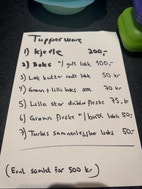 Tupperware
1) Kjerle 200,-
2) Boks m/ gult lokk 100,-
3) Lat kutter rødt lokk 50 kr
4) Grønn + lilla boks 70 kr
5) Lilla stor drikkeflaske 75,-
6) Grønn flaske m/ 50,-
7) Turkis sammenleggbar boks 50,-
(Evt. samlet for 500 kr)